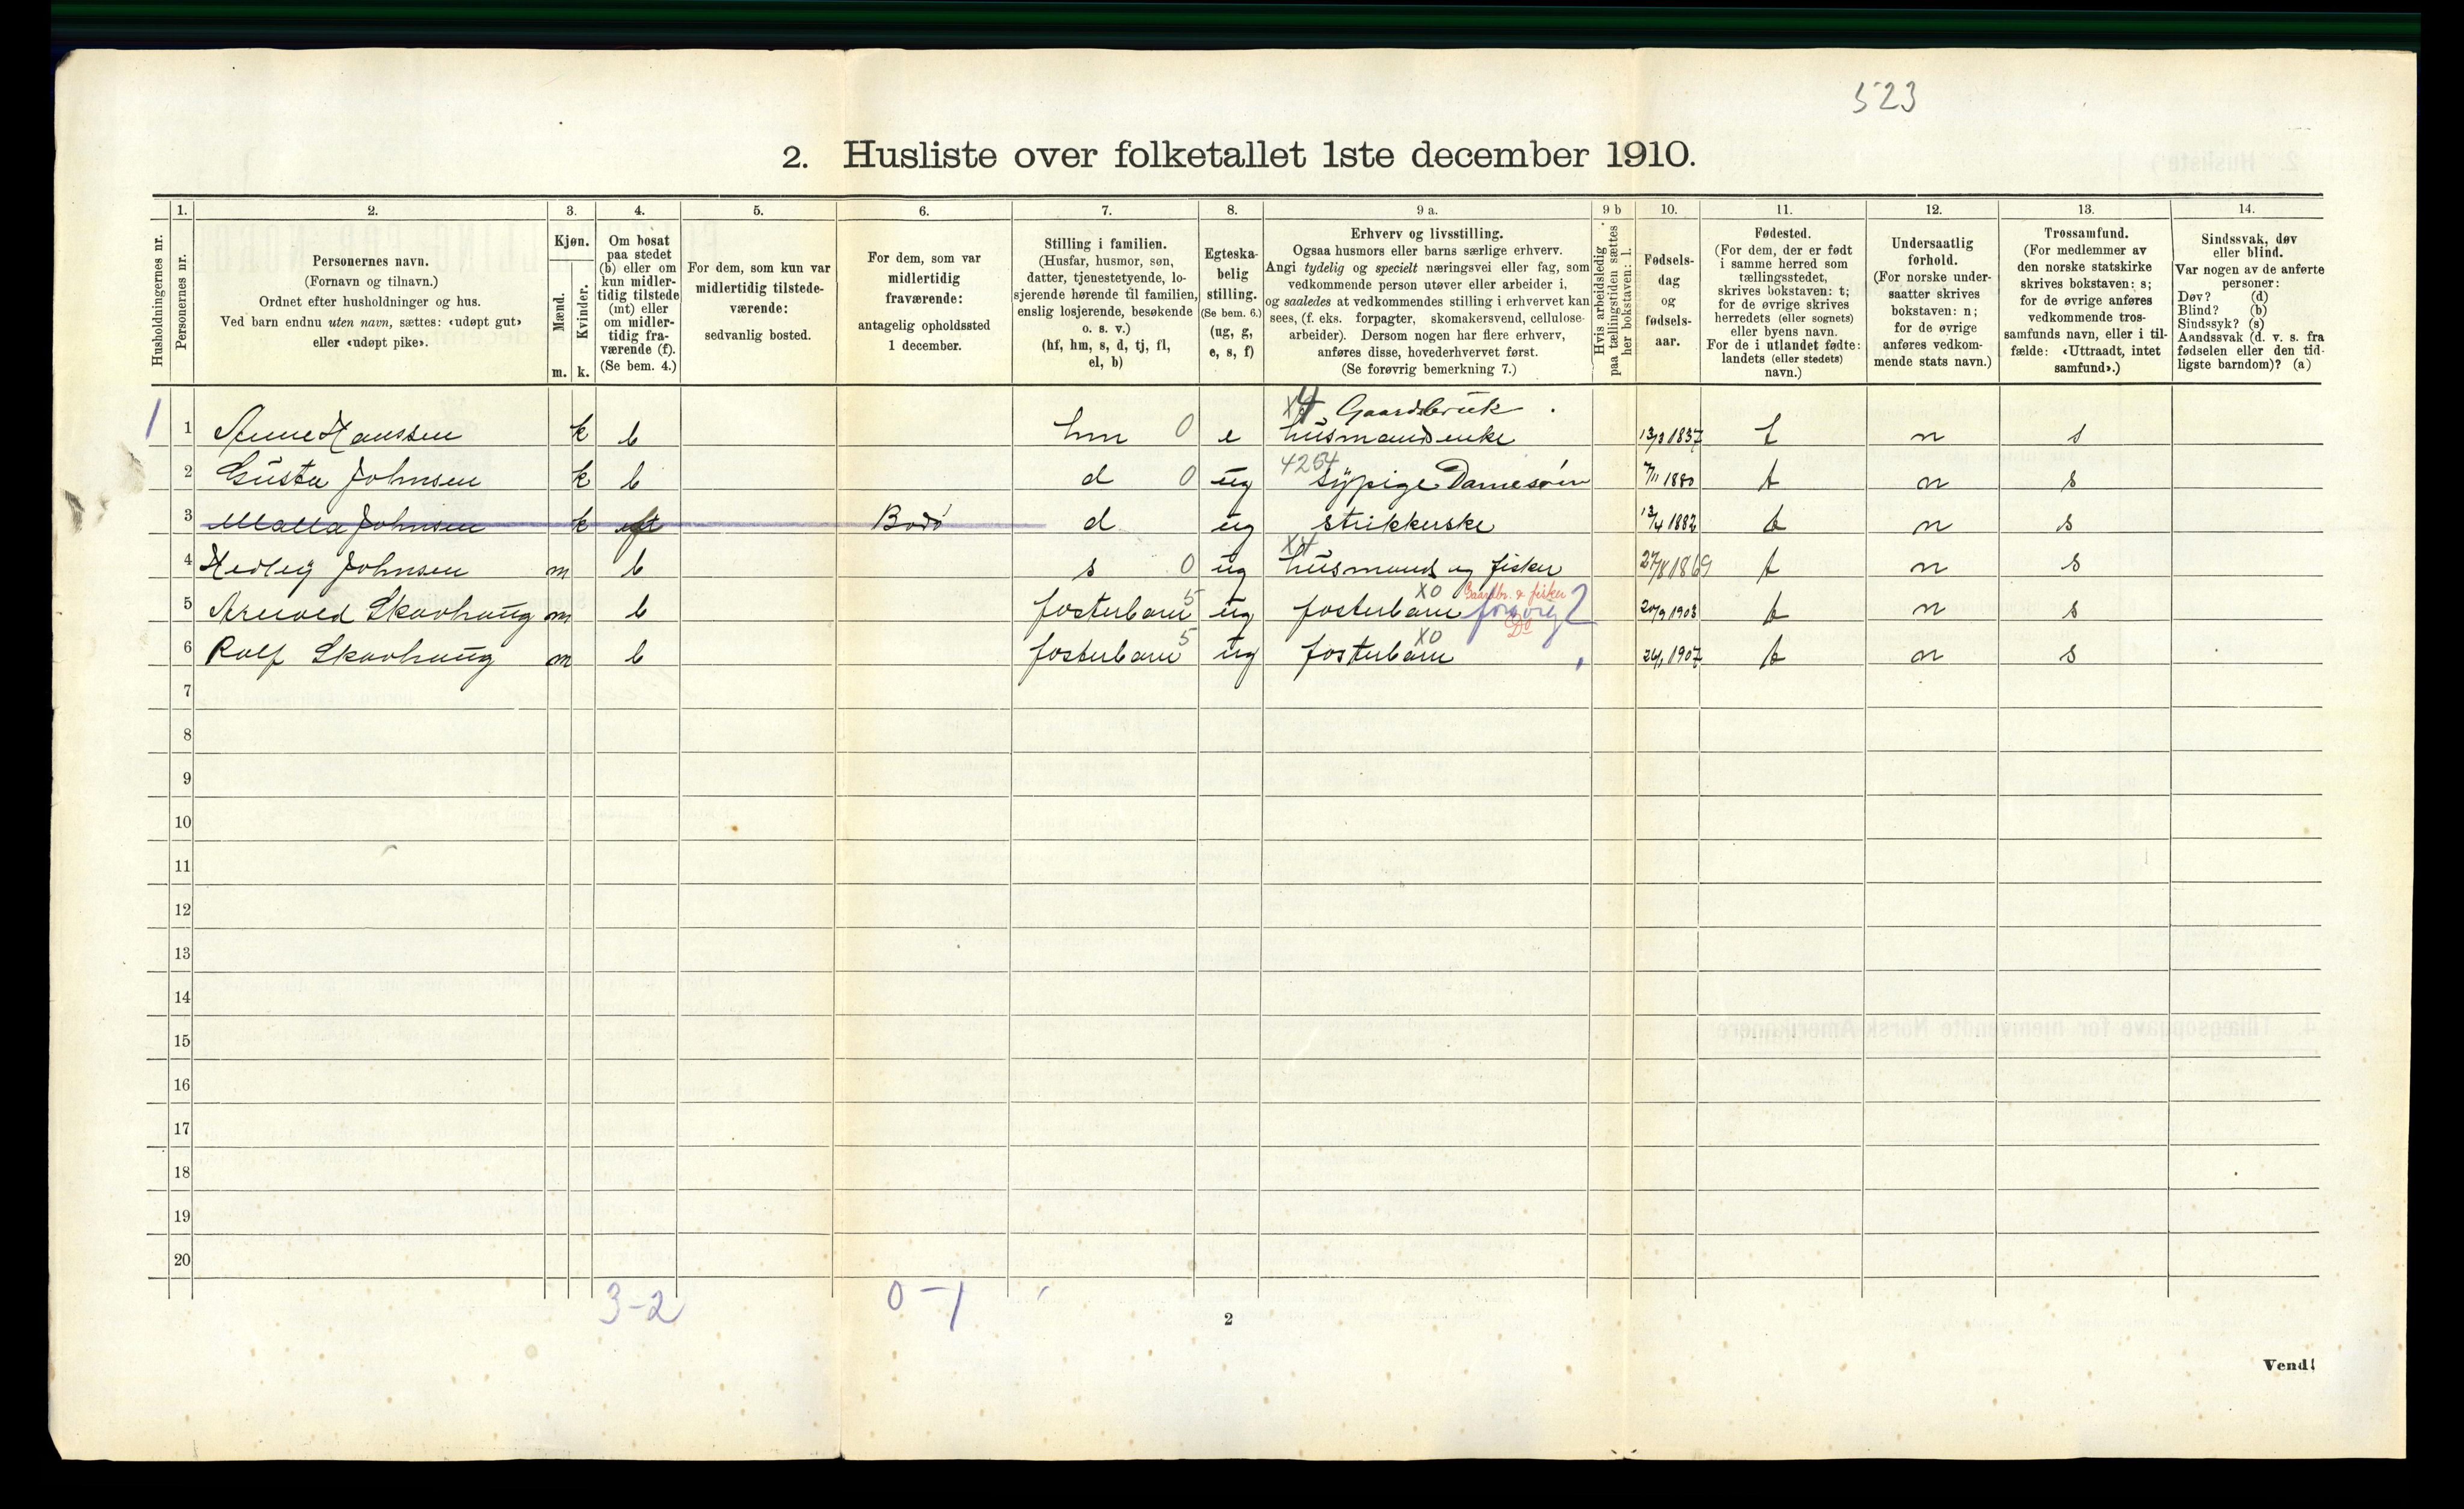 523
2. Husliste over folketallet 1ste december 1910.
Husholdningernes nr.
1.
Personernes nr.
2.
Personernes navn.
(Fornavn og tilnavn.)
Ordnet efter husholdninger og hus.
Ved barn endnu uten navn, sættes: «udøpt gut»
eller «udøpt pike».
3.
Kjøn.
Mænd.
Kvinder.
m. k.
4.
Om bosat
paa stedet
(b) eller om
kun midler-
tidig tilstede
(mt) eller
om midler-
tidig fra-
værende (f).
(Se bem. 4.)
5.
For dem, som kun var
midlertidig tilstede-
værende:
sedvanlig bosted.
6.
For dem, som var
midlertidig
fraværende:
antagelig opholdssted
1 december.
7.
Stilling i familien.
(Husfar, husmor, søn,
datter, tjenestetyende, lo-
sjerende hørende til familien,
enslig losjerende, besøkende
o. s. v.)
(hf, hm, s, d, tj, fl,
el, b)
8.
Egteska-
belig
stilling.
(Se bem. 6.)
(ug, g,
e, s, f)
9 a.
Erhverv og livsstilling.
Ogsaa husmors eller barns særlige erhverv.
Angi tydelig og specielt næringsvei eller fag, som
vedkommende person utøver eller arbeider i,
og saaledes at vedkommendes stilling i erhvervet kan
sees, (f. eks. forpagter, skomakersvend, cellulose-
arbeider). Dersom nogen har flere erhverv,
anføres disse, hovederhvervet først.
(Se forøvrig bemerkning 7.)
9 b
Hvis arbeidsledig
paa tællingstiden sættes
her bokstaven: l.
10.
Fødsels-
dag
og
fødsels-
aar.
11.
Fødested.
(For dem, der er født
i samme herred som
tællingsstedet,
skrives bokstaven: t;
for de øvrige skrives
herredets (eller sognets)
eller byens navn.
For de i utlandet fødte:
landets (eller stedets)
navn.)
12.
Undersaatlig
forhold.
(For norske under-
saatter skrives
bokstaven: n;
for de øvrige
anføres vedkom-
mende stats navn.)
13.
Trossamfund.
(For medlemmer av
den norske statskirke
skrives bokstaven: s;
for de øvrige anføres
vedkommende tros-
samfunds navn, eller i til-
fælde: «Uttraadt, intet
samfund».)
14.
Sindssvak, døv
eller blind.
Var nogen av de anførte
personer:
Døv? (d)
Blind? (b)
Sindssyk? (s)
Aandssvak (d. v. s. fra
fødselen eller den tid-
ligste barndom)? (a)
X4 Gaardsbruk
1 1 Anne Hanssen k b hm 0 e husmandsenke 13/3 1837 t n s
4254
2 Gusta Johnsen k b d 0 ug sypige Damesøm 7/11 1880 t n s
3 Malla Johnsen k Bodø d ug strikkerske 13/4 1882 t n s
X4
4 Hedley Johnsen m b s 0 ug husmand og fisker 27/8 1869 t n s
X0 Gaardbr. & fisker
5 Arnold Skavhaug m b fosterbarn 5 ug fosterbarn forsørg? 20/9 1903 t n s
X0 Do
6 Rolf Skavhaug m b fosterbarn 5 ug fosterbarn 24/1 1907 t n s
7
8
9
10
11
12
13
14
15
16
17
18
19
20
3-2 0-1
2
Vend!